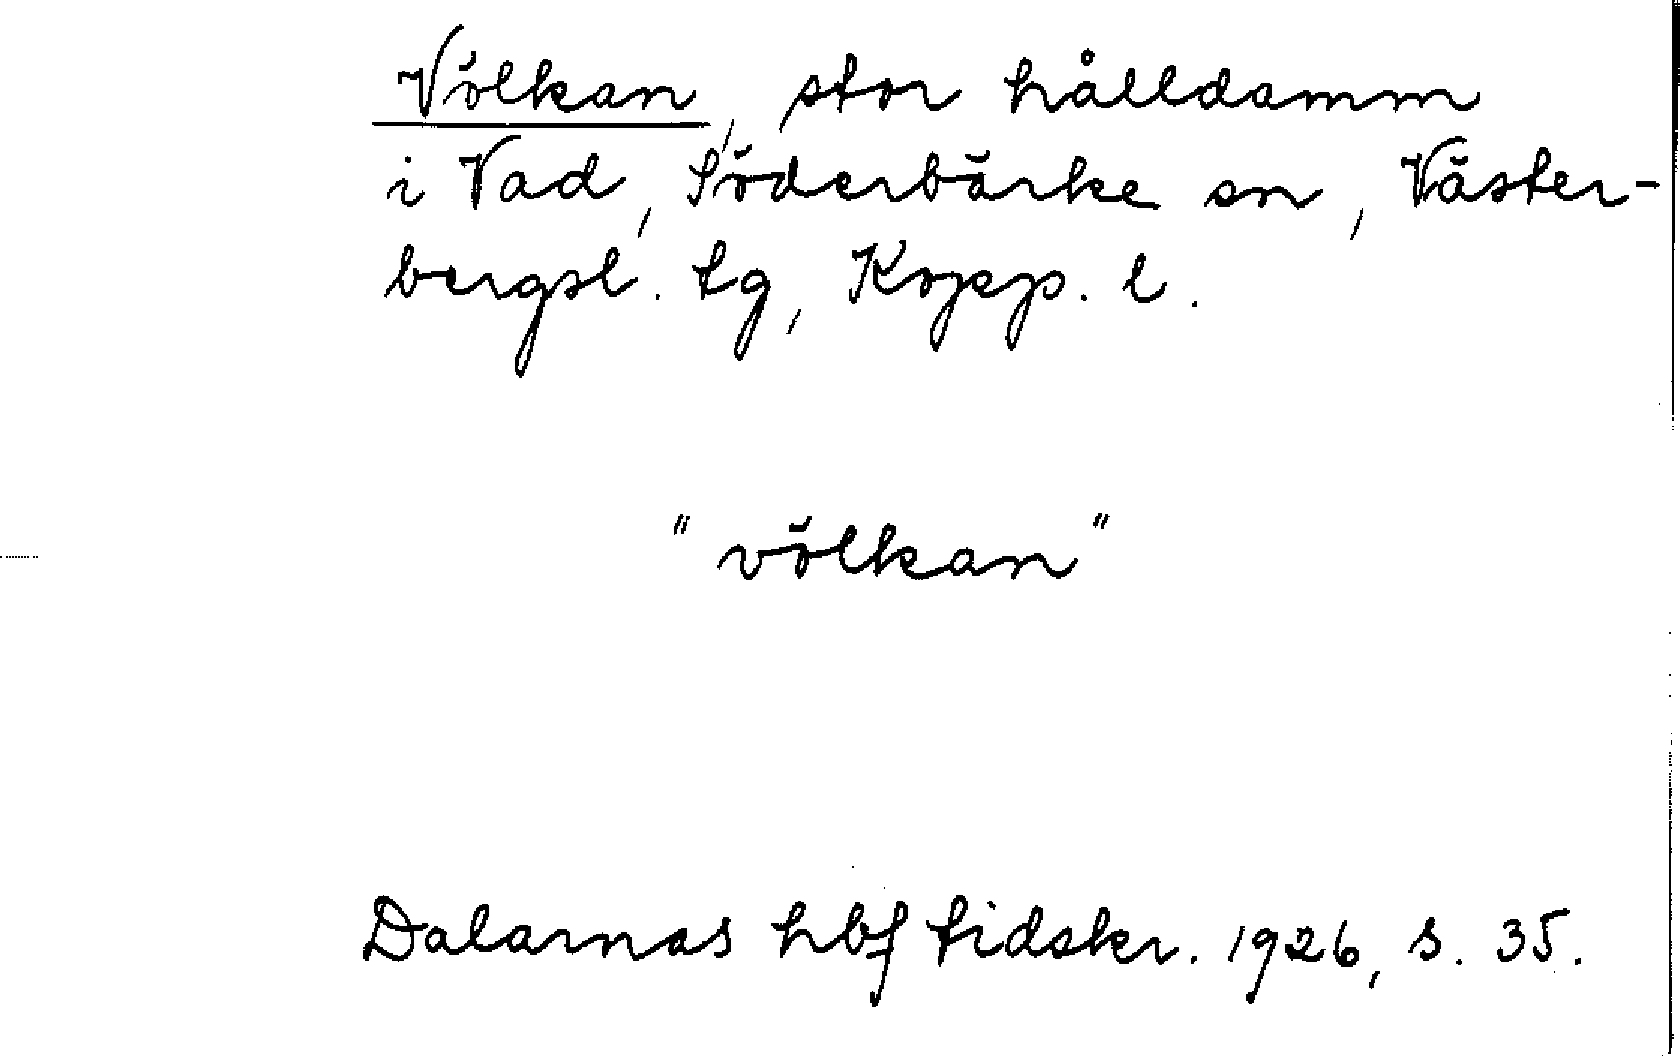 Völkan, stor hålldamm
i Vad, Söderbärke sn, Väster-
bergsl. tg, Kopp. l.
"völkan"
Dalarnas hbf tidskr. 1926, s. 35.